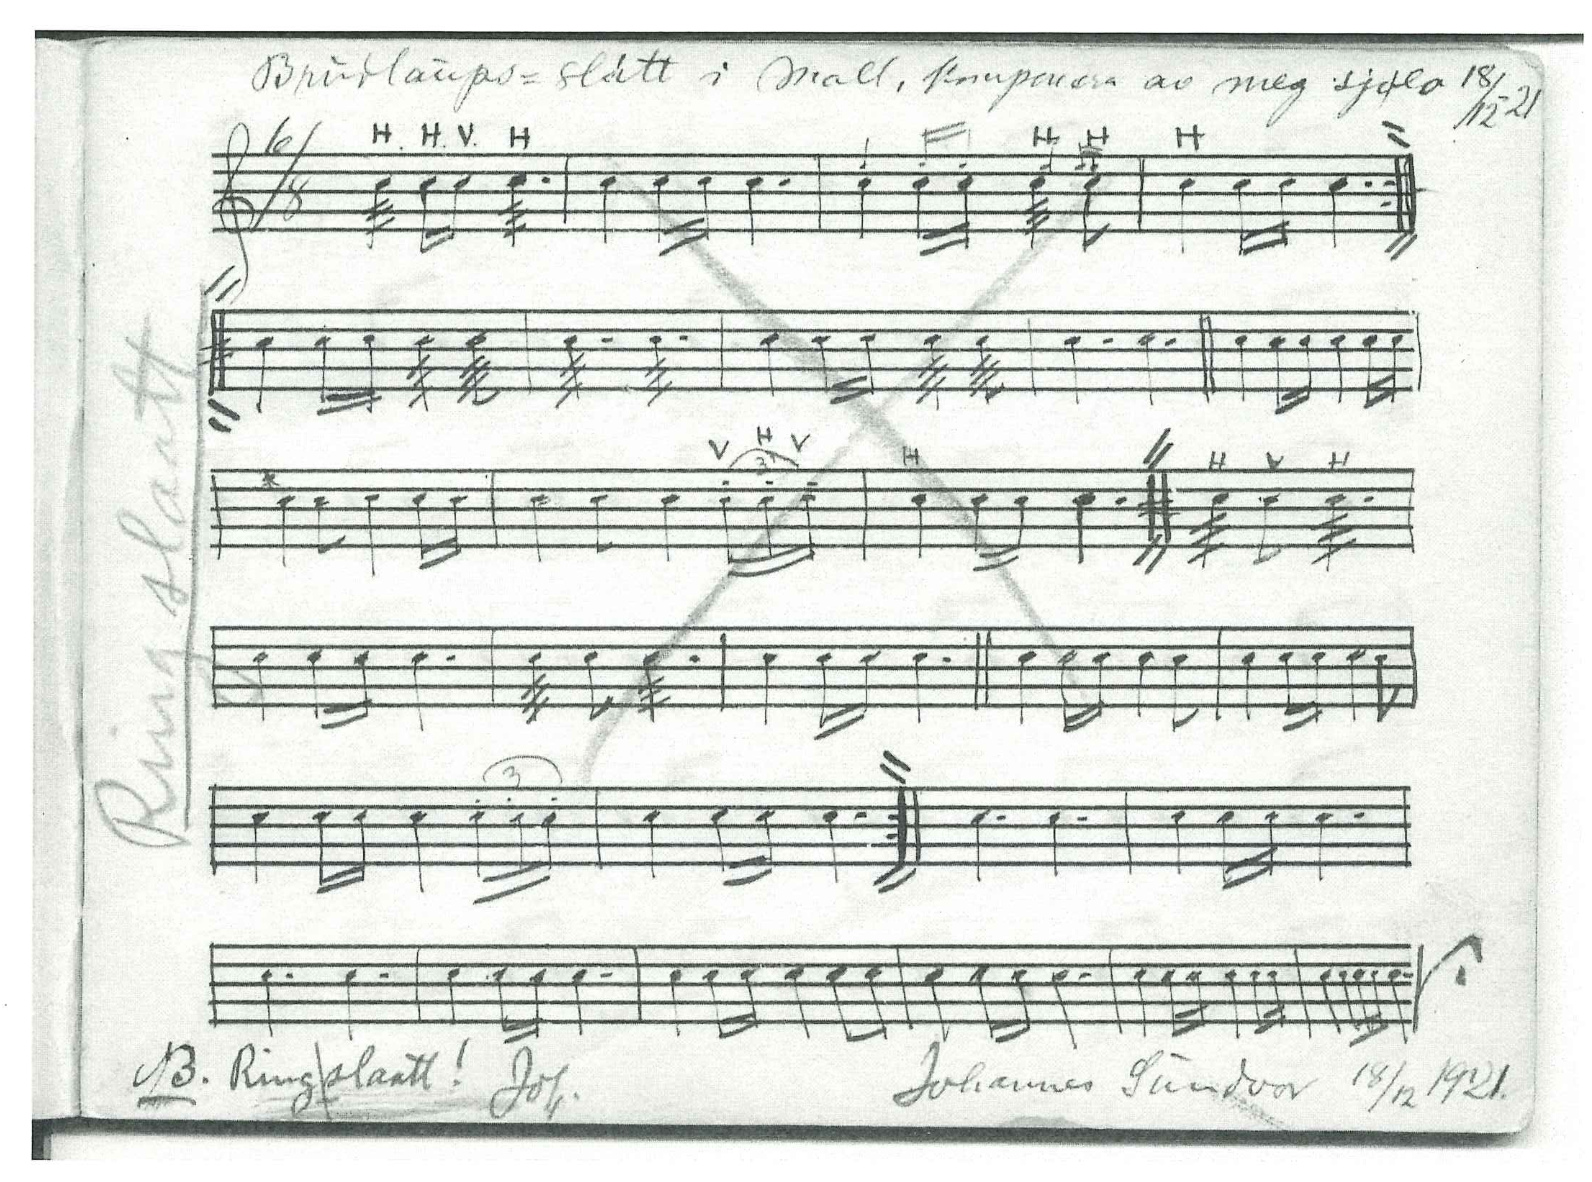 Brudlaups=slått i Moll, komponera av meg sjølv 18/12-21
6/8 H. H. V. H H H H
Ringslaatt
V H V H H V H
3
3
NB. Ringslaatt! Joh.
Johannes Sundvor 18/12 1921.